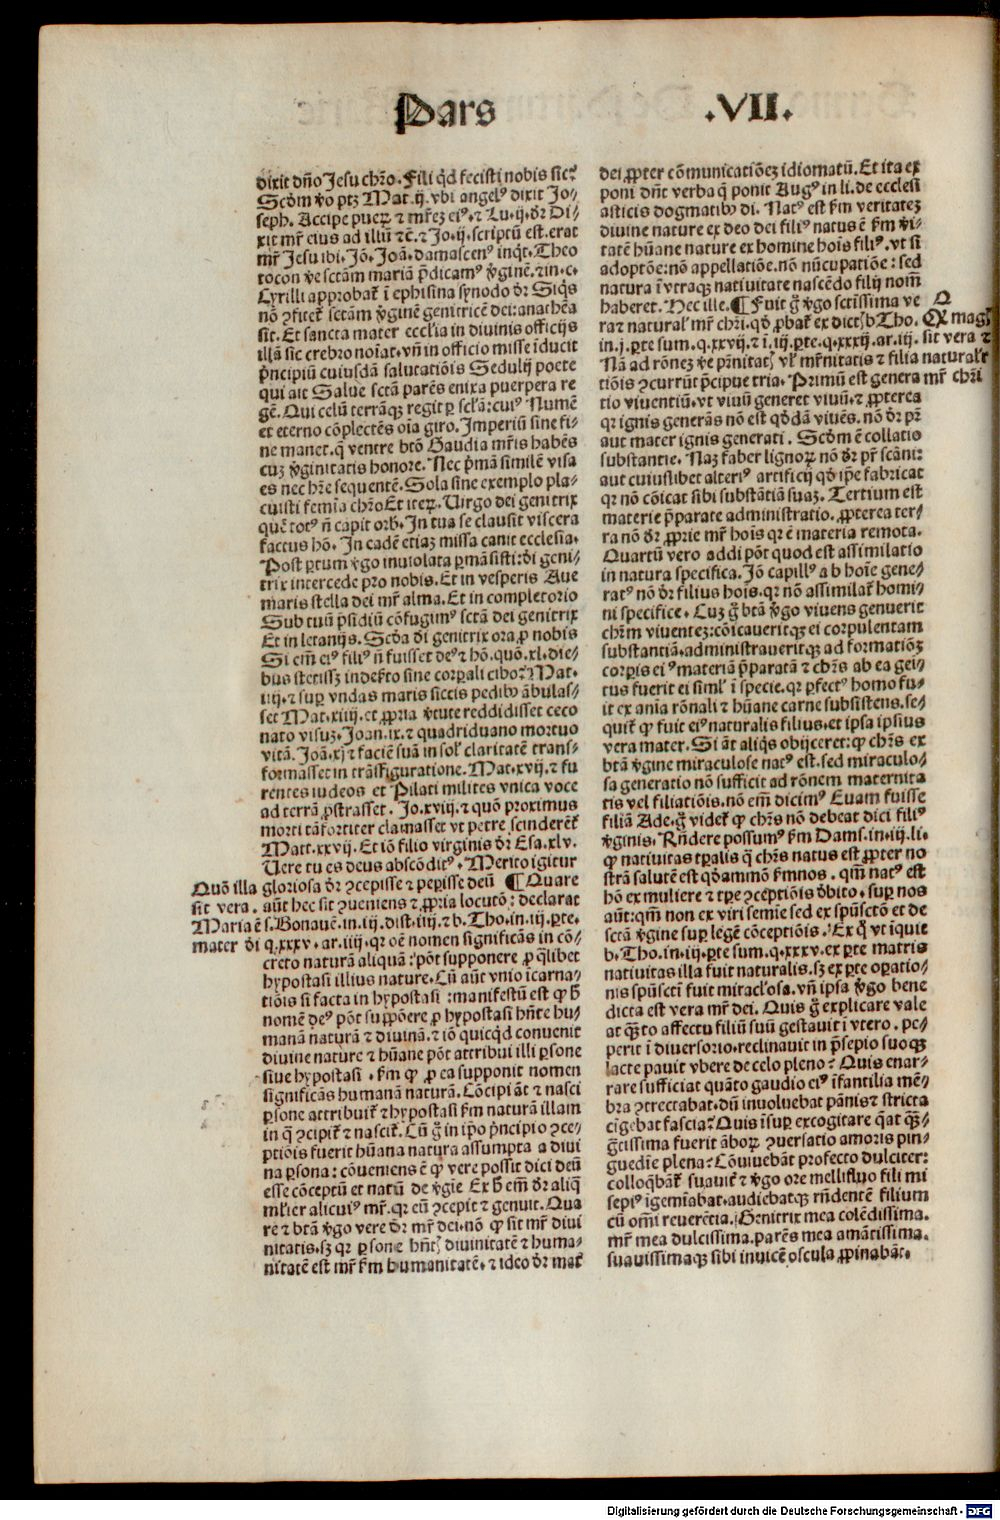 Pars .VII.
dixit dño Jesu chr̃o. Fili qͥd fecisti nobis sic?
Scðm ṽo ptʒ Mat. ij. vbi angelꝰ dixit Jo⸗
seph. Accipe pueꝝ ⁊ mr̃eʒ eiꝰ. ⁊ Lu. ij. dr̃ Di⸗
xit mr̃ eius ad illũ ⁊c̃. ⁊ Jo. ij. scriptũ est. erat
mr̃ Jesu ibi. Jõ. Joã. damascenꝰ inqͥt. Theo
tocon ṽe sctãm mariã p̃dicamꝰ ṽginẽ. ⁊ in. c.
Cyrilli approbat̃ ĩ ephisina synodo dr̃ Siqͥs
nõ ꝯfitet̃ sctãm ṽginẽ genitricẽ dei: anathẽa
sit. Et sancta mater eccl̃ia in diuinis officijs
illã sic crebro noĩat. vñ in officio misse ĩducit
pͥncipiũ cuiusdã salutatiõis Sedulij poete
qui ait Salue sctã parẽs enixa puerpera re
gẽ. Qui celũ terrãqʒ regit ꝑ sc̃la: cuiꝰ Numẽ
et eterno cõplectẽs oĩa giro. Imperiũ sine fi⸗
ne manet. q̃ ventre btõ Gaudia mr̃is habẽs
cuʒ ṽginitatis honore. Nec pͥmã similẽ visa
es nec hr̃e sequentẽ. Sola sine exemplo pla⸗
cuisti femĩa chr̃o Et iteꝝ. Virgo dei genitrix
quẽ totꝰ ñ capit orb̃. In tua se clausit viscera
factus hõ. In cadẽ etiaʒ missa canit ecclesia.
Post ꝑtum ṽgo inuiolata ꝑmãsisti: d̃i geni⸗
trix intercede pro nobis. Et in vesperis Aue
maris stella dei mr̃ alma. Et in completorio
Sub tuũ p̃sidiũ cõfugimꝰ sctã dei genitrix
Et in letanijs. Sctã d̃i genitrix ora ꝓ nobis
Si em̃ eiꝰ filiꝰ ñ fuisset deꝰ ⁊ hõ. quõ. xl. die⸗
bus stetissʒ indef̃to sine corꝑali cibo? Mat.
iiij. ⁊ suꝑ vndas maris siccis pedibꝰ ãbulas⸗
set Mat. xiiij. et ꝓpria ṽtute reddidisset ceco
nato visuʒ. Joan. ix. ⁊ quadriduano mortuo
vitã. Joã. xj ⁊ faciẽ suã in sol̃ claritatẽ trans⸗
formasset in trãsfiguratione. Mat. xvij. ⁊ fu
rentes iudeos et Pilati milites vnica voce
ad terrã ꝓstrasset. Jo. xviij. ⁊ quõ proximus
morti tã fortiter clamasset vt petre scinderẽt̃
Matt. xxvij. Et iõ filio virginis dr̃ Esa. xlv.
Vere tu es deus abscõditꝰ. Merito igitur
gloriosa dr̃ ꝯcepisse ⁊ peperisse deũ ¶ Quare
aũt hec sit ꝯueniens ⁊ ꝓpria locutõ: declarat
s. Bonauẽ. in. iij. dist. iiij. ⁊ b. Tho. in. iij. ꝑte.
q. xxxv. ar. iiij. qꝛ oẽ nomen significãs in cõ⸗
creto naturã aliquã: põt supponere ꝓ q̃libet
hypostasi illius nature. Cũ aũt vnio ĩcarna⸗
tiõis si facta in hypostasi: manifestũ est ꝙ h̃
nomẽ deꝰ põt suꝓpõere ꝓ hypostasi hñte hu⸗
manã naturã ⁊ diuinã. ⁊ iõ quicqͥd conuenit
diuine nature ⁊ hũane põt attribui illi ꝑsone
siue hypostasi. fm̃ ꝙ ꝓ ea supponit nomen
significãs humanã naturã. Cõcipi aũt ⁊ nasci
ꝑsone attribuit̃ ⁊ hypostasi fm̃ naturã illam
in q̃ ꝯcipit̃ ⁊ nascit̃. Cũ g̃ in ip̃o pͥncipio ꝯce⸗
ptiõis fuerit hũana natura assumpta a diui
na ꝑsona: cõueniens ẽ ꝙ vere possit dici deũ
esse cõceptũ et natũ de ṽgĩe Ex h̃ em̃ dr̃ aliq̃
ml̃ier alicuiꝰ mr̃. qꝛ eũ ꝯcepit ⁊ genuit. Qua
re ⁊ btã ṽgo vere dr̃ mr̃ dei. nõ ꝙ sit mr̃ diui
nitatis. sʒ qꝛ ꝑsone hñtꝭ diuinitatẽ ⁊ huma⸗
nitatẽ est mr̃ fm̃ humanitatẽ. ⁊ ideo dr̃ mat̃
Quõ illa
sit vera.
Maria ẽ
mater d̃i
dei. ꝓpter cõmunicatiõeʒ idiomatũ. Et ita ex
poni dñt verba q̃ ponit Augꝰ in li. de ecclesi
asticis dogmatibꝰ di. Natꝰ est fm̃ veritateʒ
diuine nature ex deo dei filiꝰ natus ẽ fm̃ ṽi⸗
tatẽ hũane nature ex homine hoĩs filiꝰ. vt si
adoptõe: nõ appellatiõe. nõ nũcupatiõe: sed
natura ĩ vtraqʒ natiuitate nascẽdo filij nom̃
haberet. Hec ille. ¶ Fuit g̃ ṽgo sctĩssima ve
raʒ natural̃ mr̃ chr̃i. qð ꝓbat̃ ex dictꝭ b Tho.
in. j. ꝑte sum. q. xxvij. ⁊ ĩ. iij. ꝑte. q. xxxij. ar. iij.
Nã ad rõneʒ ṽe pr̃nitatꝭ vl̃ mr̃nitatis ⁊ filia
tiõis ꝯcurrũt pͥcipue tria. Primũ est genera
tio viuentiũ. vt viuũ generet viuũ. ⁊ ꝓpterea
qꝛ ignis generãs nõ est qðdã viuẽs. nõ dr̃ pr̃
aut mater ignis generati. Scðm ẽ collatio
substantie. Naʒ faber lignoꝝ nõ dr̃ pr̃ scãni:
aut cuiuslibet alteriꝰ artificij qð ip̃e fabricat
qꝛ nõ cõicat sibi substãtiã suaʒ. Tertium est
materie p̃parate administratio. ꝓpterea ter⸗
ra nõ dr̃ ꝓprie mr̃ hoĩs qꝛ ẽ materia remota.
Quartũ vero addi põt quod est assimilatio
in natura specifica. Jõ capillꝰ a b hoĩe gene⸗
ratꝰ nõ dr̃ filius hoĩs. qꝛ nõ assimilat̃ homi⸗
ni specifice. Cuʒ g̃ btã ṽgo viuens genuerit
chr̃m viuenteʒ: cõicaueritqʒ ei corpulentam
substantiã. administraueritqʒ ad formatiõeʒ
corꝑis eiꝰ materiã p̃paratã ⁊ chr̃s ab ea gei⸗
tus fuerit ei siml̃ ĩ specie. qꝛ ꝑfectꝰ homo fu⸗
it ex aĩa rõnali ⁊ hũane carne subsistens. se⸗
quit̃ ꝙ fuit eiꝰ naturalis filius. et ipsa ipsius
vera mater. Si aũt aliqͥs obijceret: ꝙ chr̃s ex
btã ṽgine miraculose natꝰ est. sed miraculo⸗
sa generatio nõ sufficit ad rõnem maternita
tis vel filiatiõis. nõ em̃ dicimꝰ Euam fuisse
filiã Ade. g̃ videt̃ ꝙ chr̃s nõ debeat dici filiꝰ
ṽginis. Rñdere possumꝰ fm̃ Dams. in. iij. li.
ꝙ natiuitas tꝑalis q̃ chr̃s natus est ꝓpter no
strã salutẽ est qðammõ fm̃ nos. qm̃ natꝰ est
hõ ex muliere ⁊ tꝑe ꝯceptiõis d̃bito. suꝑ nos
aũt: qm̃ non ex viri semĩe sed ex spũsctõ et de
sctã ṽgine suꝑ legẽ cõceptiõis. Ex q̃ vt iquit
b. Tho. in. iij. ꝑte sum. q. xxxv. ex ꝑte matris
natiuitas illa fuit naturalis. sʒ ex ꝑte oꝑatio⸗
nis spũsctĩ fuit miracl̃osa. vñ ipsa ṽgo bene
dicta est vera mr̃ dei. Quis g̃ explicare vale
at q̃ʒto affectu filiũ suũ gestauit ĩ vtero. pe⸗
perit ĩ diuersorio. reclinauit in p̃sepio suoqʒ
lacte pauit vbere de celo pleno? Quis enar⸗
rare sufficiat quãto gaudio eiꝰ ĩfantilia mẽ⸗
bra ꝯtrectabat. dũ inuoluebat pãnis ⁊ stricta
cĩgebat fascia? Quis ĩsuꝑ excogitare q̃at q̃ʒ⸗
g̃tissima fuerit ãboꝝ ꝯuersatio amoris pin⸗
guedĩe plena? Cõuiuebãt profecto dulciter:
colloq̃bãt̃ suauit̃ ⁊ ṽgo ore mellifluo fili mi
sepiꝰ ĩgemĩabat. audiebatqʒ rñdentẽ filium
cũ om̃i reuerẽtia. Genitrix mea colẽdissima.
mr̃ mea dulcissima. parẽs mea amãtissima.
suauissimaqʒ sibi inuicẽ oscula ꝓpinabãt.
Q
Ex magꝭ
sit vera ⁊
natural̃r
mr̃ chr̃i
Digitalisierung gefördert durch die Deutsche Forschungsgemeinschaft - DFG